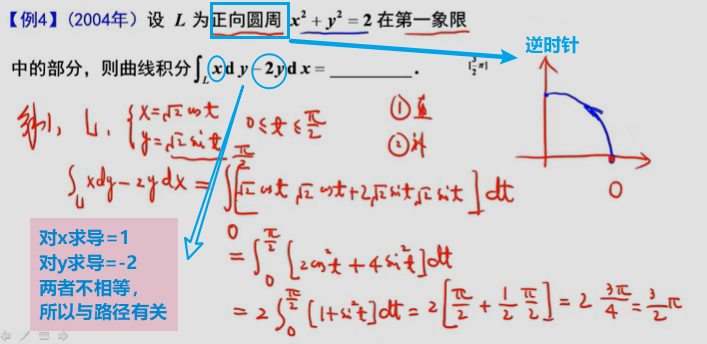 【例4】(2004年) 设 L 为正向圆周 x² + y² = 2 在第一象限
中的部分，则曲线积分∫_L x d y − 2y d x = ________ .
[3/2 π]
逆时针
解1, L: { x=√2 cos t
y=√2 sin t
0 ≤ t ≤ π/2
① 直
② 补
∫_L xdy − 2ydx = ∫_0^{π/2} [√2 cos t √2 cos t + 2√2 sin t √2 sin t] dt
= ∫_0^{π/2} [2cos²t + 4 sin²t] dt
= 2 ∫_0^{π/2} [1+sin²t] dt = 2[π/2 + 1/2 π/2] = 2 3π/4 = 3/2 π
0
对x求导=1
对y求导=-2
两者不相等，
所以与路径有关